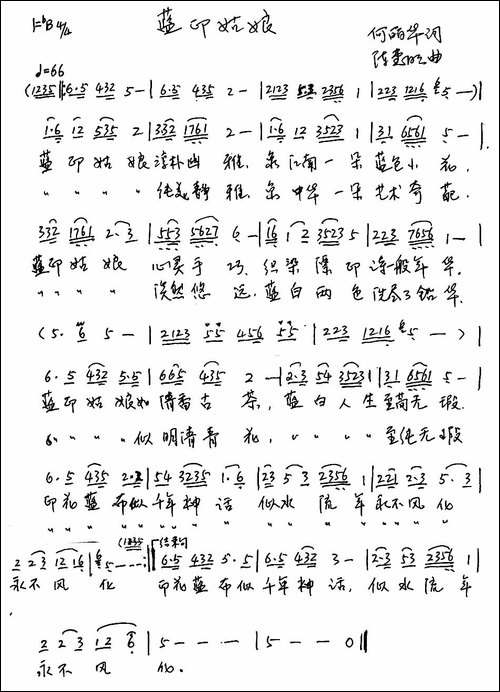 蓝印姑娘
1=ᵇB 4/4
何丽华词
♩=66
(1235 | 6·5 432 5 - | 6·5 435 2 - | 2123 55 2356 1 | 223 1216 5 - - ) |
1·6 12 535 2 | 332 1761 2 - | 1·6 12 3523 1 | 31 6561 5 - |
蓝印姑娘淳朴幽雅.来江南一朵蓝色小花,
〃 〃 〃 〃 纯美静雅.是中华一朵艺术奇葩.
332 1761 2·3 | 553 5627 6 - | 16 1 2 3523 5 | 223 7656 1 - |
蓝印姑娘 心灵手巧.织染 印 般年华.
〃 〃 〃 〃 悠远.蓝白两色洗尽了铅华.
(5· 6 5 - | 2123 55 456 55 | 223 1216 5 - ) |
6·5 432 5·5 | 665 435 2 - | 2·3 54 3523 1 | 31 6561 5 - |
蓝印姑娘如清香古茶,蓝白人生至高无瑕.
〃 〃 〃 〃 似明清青花,〃 〃 〃 〃 至纯无瑕
6·5 435 2·2 | 54 3235 1·6 | 23 5 3 2356 1 | 221 2·3 5·3 |
印花蓝布似千年神话 似水流年永不风化
〃 〃 〃 〃 〃 〃 〃 〃 〃 〃 〃 〃 〃 〃 〃 〃 〃
(1235 结束句
2 23 12 16 | 5 - - - | 6·5 432 5·5 | 6·5 432 3 - | 2·3 53 2356 1 |
永不风化 印花蓝布似千年神话,似水流年
2 2 3 1 2 6 | 5 - - - | 5 - - 0 ‖
永不风化.